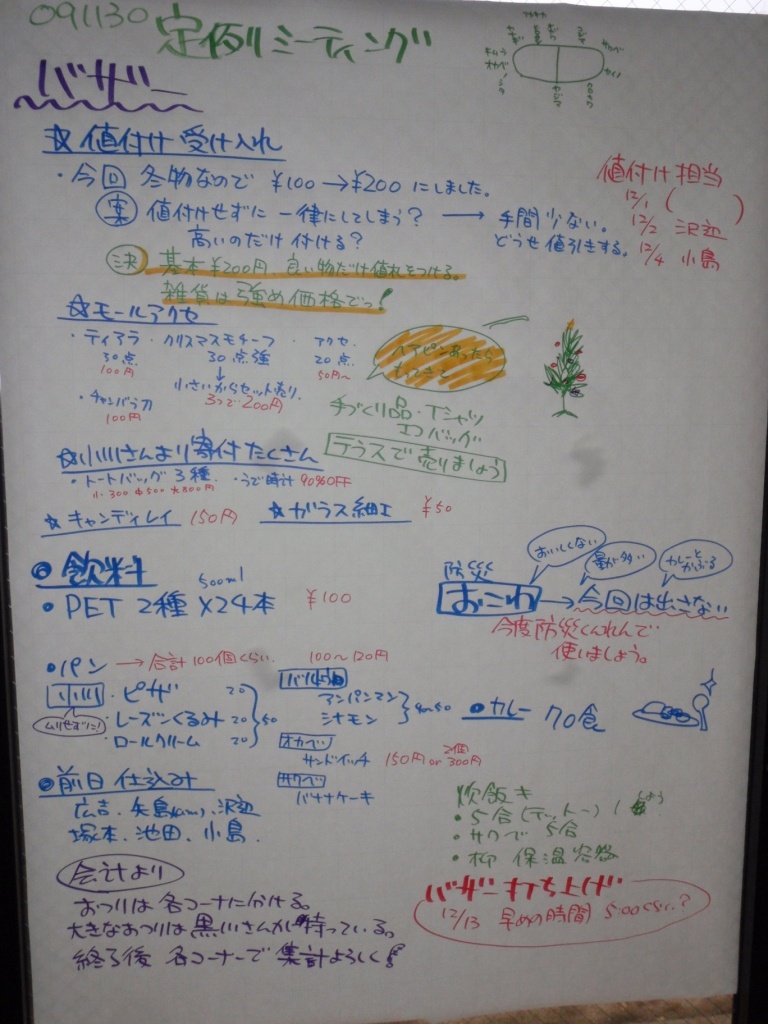 091130 定例ミーティング
バザー
☆ 値付け 受け入れ
・今回 冬物なので ¥100→¥200 にしました。
案 値付けせずに 一律にしてしまう? → 手間少ない。
高いのだけ 付ける? どうせ値引きする。
決 基本¥200円、良い物だけ値札をつける。
雑貨は強め価格でっ!
値付け担当
12/1 ( )
12/2 沢辺
12/4 小島
☆モールアクセ
・ティアラ ・クリスマスモチーフ ・アクセ.
30点 30点強 20点
100円 ↓ 50円~
小さいからセット売り.
3つで200円
・チャンバラ刀
100円
ヘアピンあったら
もってきて
手づくり品・Tシャツ
エコバッグ
テラスで売りましょう
☆小川さんより寄付たくさん
・トートバッグ 3種 ・うで時計 90%OFF
小300 中500 大800円
☆キャンディレイ 150円 ☆ガラス細工 ¥50
◎飲料
500ml
・PET 2種 ×24本 ¥100
防災
おこわ → 今回は出さない
おいしくない
量が多い
カレーとかぶる
今度防災くんれんで
使いましょう。
・パン → 合計100個くらい. 100~120円
小川 ・ピザ 20
ムリせずに!
・レーズンくるみ 20
・ロールクリーム 20
アンパンマン
シナモン
オカベ
サンドイッチ 150円 or 2個300円
サカベ
バナナケーキ
◎カレー 70食
◎前日仕込み
広吉、矢島(am)、沢辺
塚本、池田、小島
炊飯き
・5合
・サカベ 5合
・柳 保温容器
会計より
おつりは各コーナにかける。
大きなおつりは黒川さんが持っている。
終了後 各コーナーで集計よろしく!
バザー打ち上げ
12/13 早めの時間 5:00くらい?